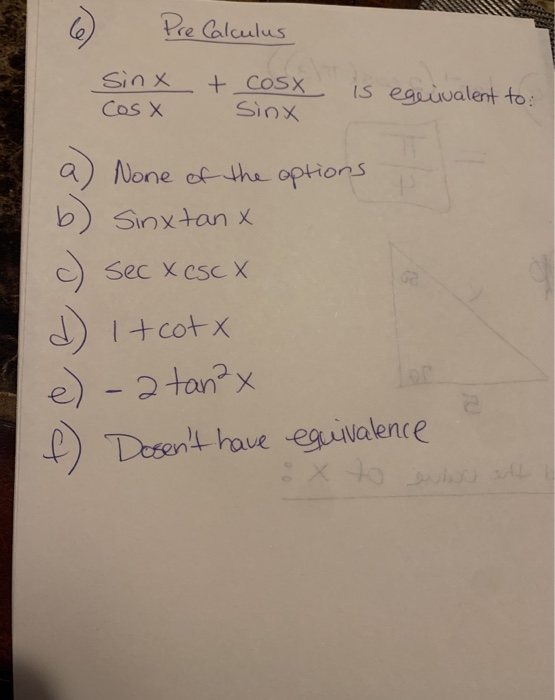 6) Pre Calculus
sin x / cos x + cos x / sin x is equivalent to:
a) None of the options
b) sinx tan x
c) sec x csc x
d) 1 + cot x
e) - 2 tan² x
f) Dosen't have equivalence